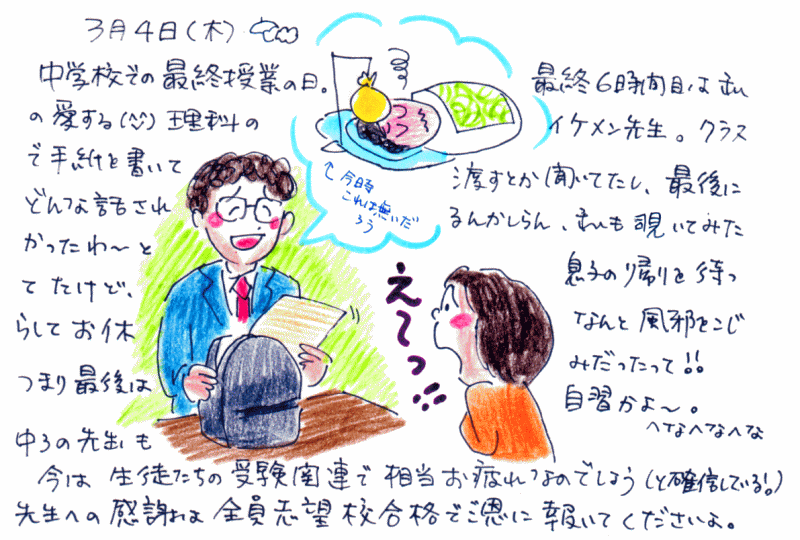 3月4日(木)
中学校での最終授業の日。最終6時間目は私
の愛する 理科のイケメン先生。クラス
で手紙を書いて渡すとか聞いてたし、最後に
どんな話されるんかしらん、私も覗いてみた
かったわ〜と息子の帰りを待っ
てたけど、なんと風邪をこじ
らしてお休みだったって!!
つまり最後は自習かよ〜。
へなへなへな
中3の先生も
今は生徒たちの受験関連で相当お疲れなのでしょう(と確信している!)
先生への感謝は全員志望校合格でご恩に報いてくださいよ。
↑今時
これは無いだ
ろう
えーっ!!